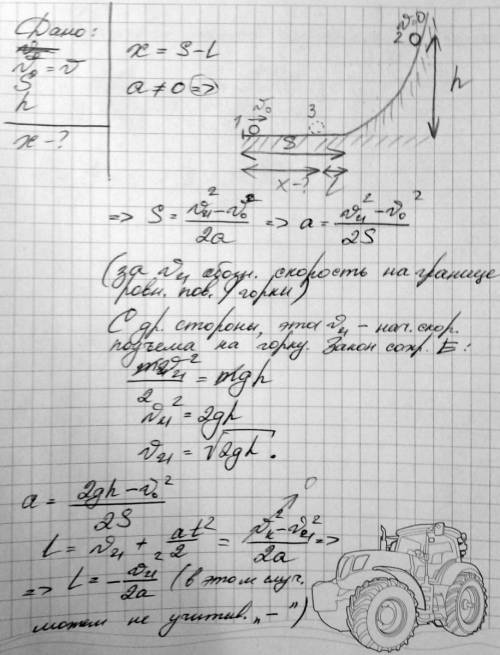 Дано:
v₀ = v
S
h
x - ?
x = S - L
a ≠ 0 =>
v=0
2
h
1
v₀
3
S
x-?
L
=> S = (v₁₁² - v₀²)/2a => a = (v₁₁² - v₀²)/2S
(за v₁₁ обозн. скорость на границе
ровн. пов. / горки)
С др. стороны, эта v₁₁ - нач. скор.
подъема на горку. Закон сохр. E:
mv₁₁²/2 = mgh
v₁₁² = 2gh
v₁₁ = √2gh.
a = (2gh - v₀²)/2S
0
L = v₁₁ + at²/2 = (vₖ² - v₁₁²)/2a =>
=> L = -v₁₁/2a (в этом случ.
можем не учитыв. „-")